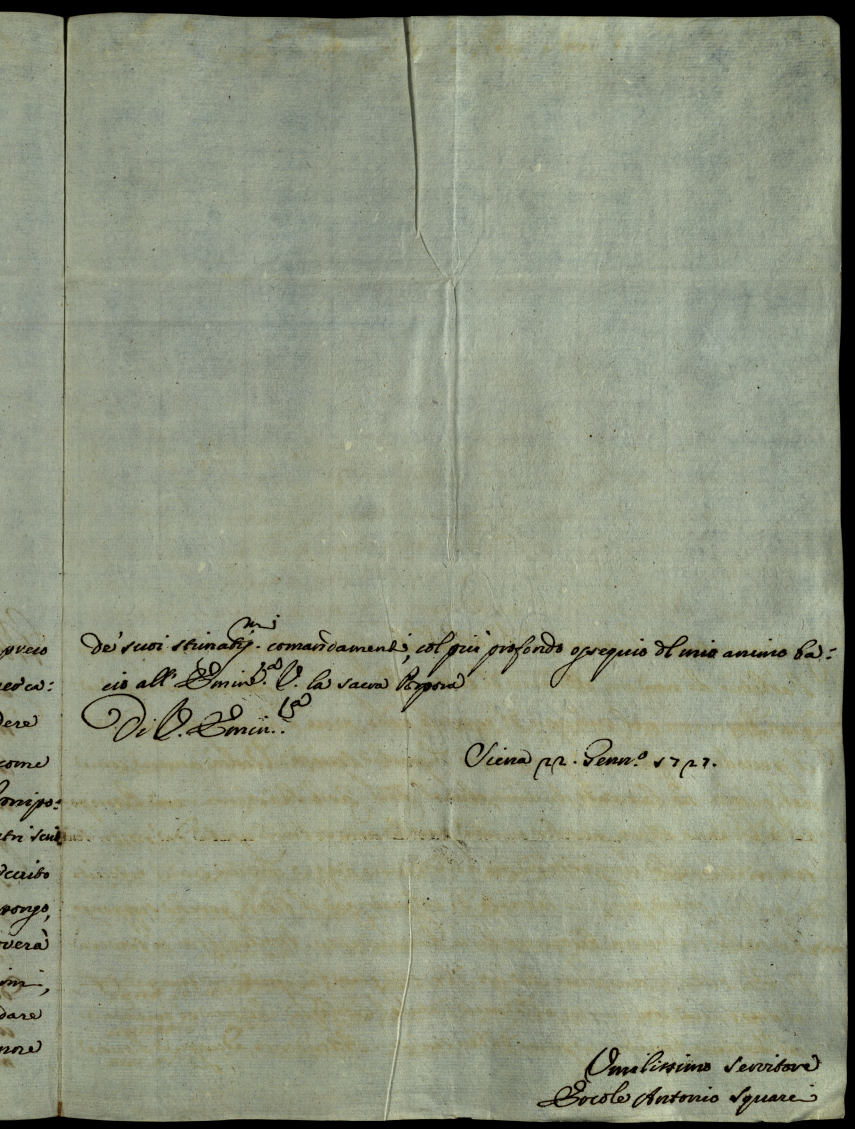 precio
dere
come
scribo
pongo,
verà
dare
nore
de' suoi stimatiss.mi comandamenti, col più profondo ossequio dl mio animo ba:
cio all' Emin.za V. la sacra Porpora
Di V. Emin.za
Siena 22. Genn.o 1727.
Umilissimo Servitore
Ercole Antonio Squarci